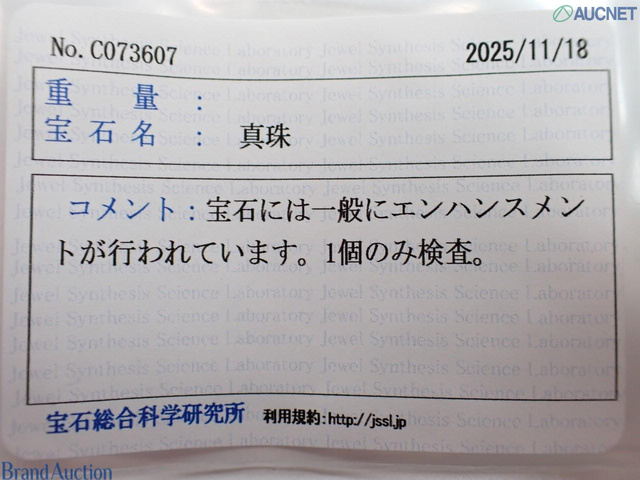 AUCNET
No. C073607
2025/11/18
重 量 :
宝石名 : 真珠
コメント:宝石には一般にエンハンスメン
トが行われています。1個のみ検査。
宝石総合科学研究所 利用規約:http://jssl.jp
Brand Auction
Jewel Synthesis Science Laboratory